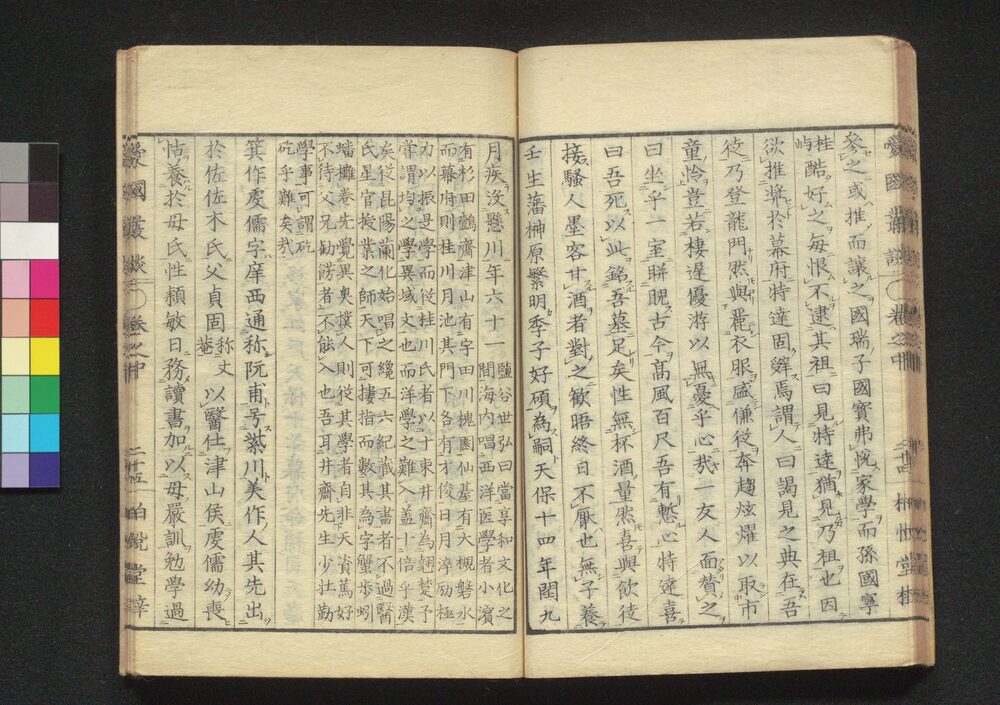 參之或推而讓之國瑞子國寶弗悅家學而孫國寧
桂酷好之每恨不逮其祖曰見特達猶見乃祖也因
嶼
欲推奬於幕府特達固辭焉謂人曰謁見之典在吾
彼乃登龍門然與麗衣服盛傔役奔趨炫燿以取市
童怜豈若棲遲優游以無憂乎心哉一友人面贊之
曰坐乎一室睥睨古今高風百尺吾有慙心特達喜
曰吾死以此銘吾墓足矣性無杯酒量然喜與飲徒
接騷人墨客甘酒者對之歡晤終日不厭也無子養
壬生藩榊原繁明季子好碩為嗣天保十四年閏九
月疾沒懸川年六十一
鹽谷世弘曰當享和文化之
間海内唱西洋医學者小濱
有杉田鷧齋津山有宇田川槐園仙臺有大槻磐水
而幕府則桂川月池其門下各有才俊日月淬励極
力以振是學而從桂川氏者以十束井齋為翹楚予
嘗謂均之學異域文也而洋學之難入盖十倍乎漢
矣從昆陽蘭化始唱之纔五六紀蔵其書者不過醫
氏星官授業之師天下可摟指而數其為字蟹歩蚓
蟠攤卷先覺異臭撲人則從其學者自非天資篤好
不待父兄勧誘者不能入也吾耳井齋先生少壮勤
學事可謂矻
矻乎難矣哉
箕作虔儒字庠西通称阮甫号紫川美作人其先出
於佐佐木氏父貞固称丈菴以醫仕津山侯虔儒幼喪
怙養於母氏性穎敏日務讀書加以母嚴訓勉學過
愛國叢談 卷之中 二十五